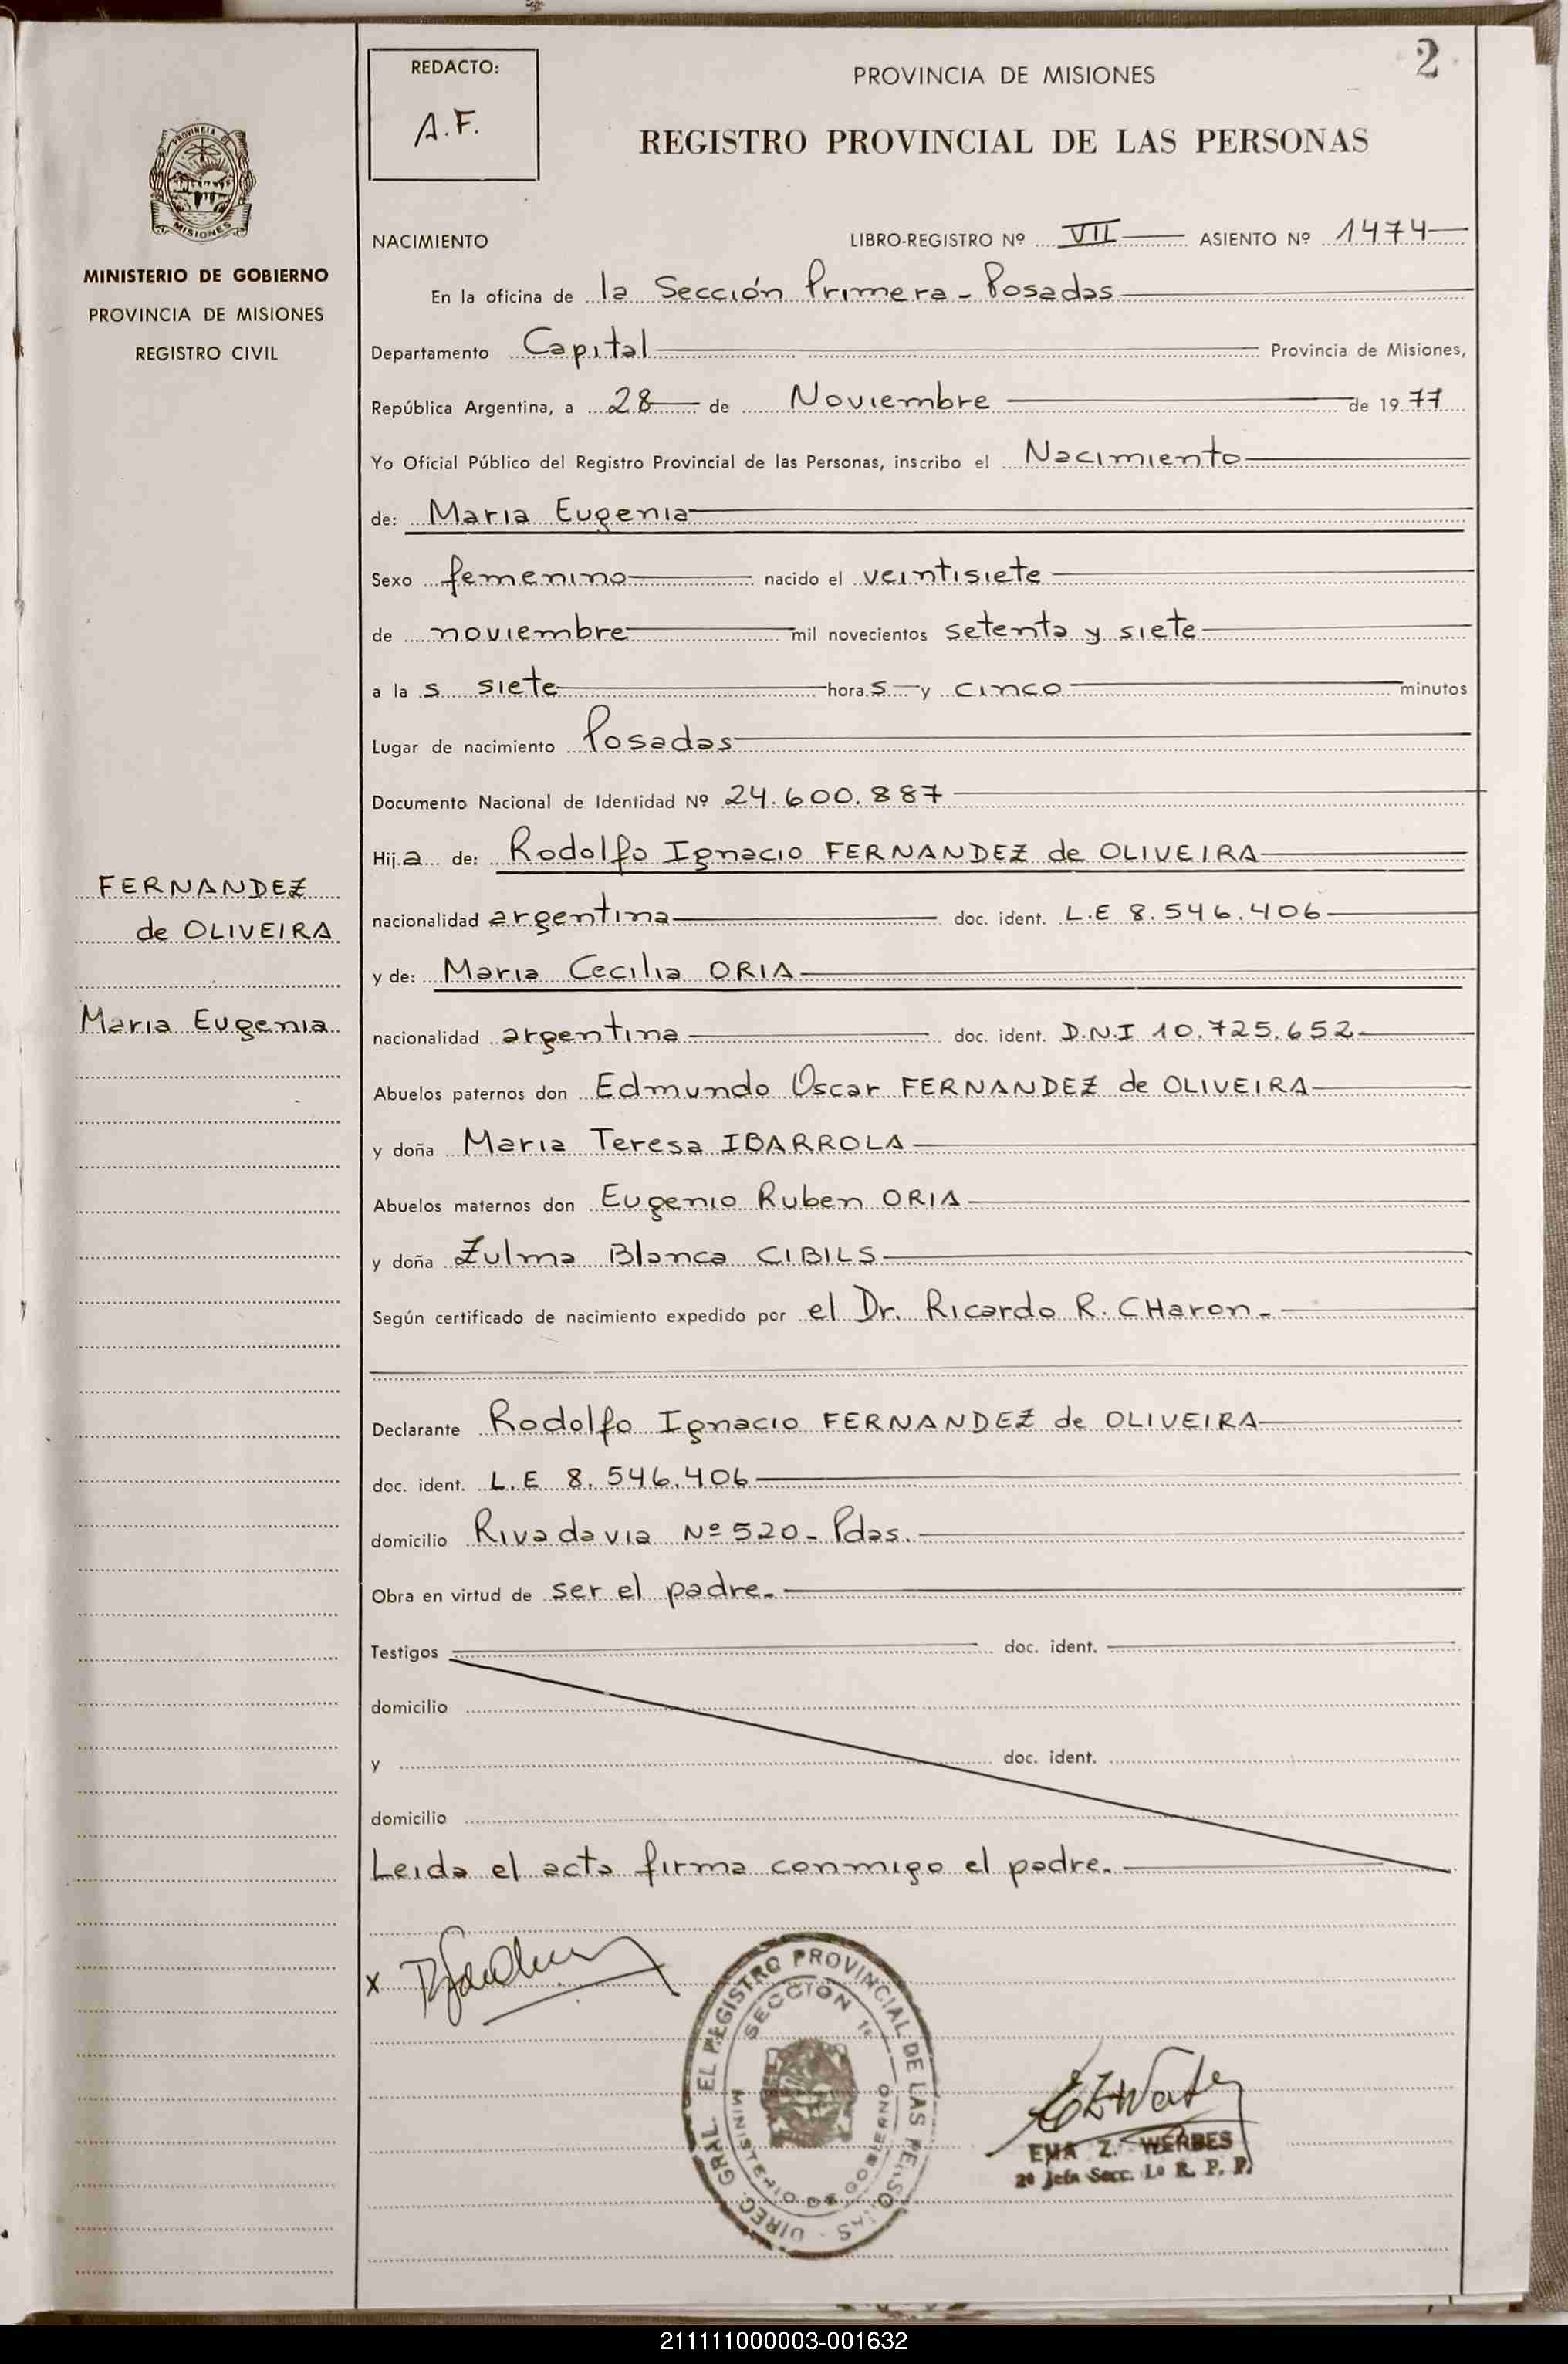 2
REDACTO:
A.F.
PROVINCIA DE MISIONES
REGISTRO PROVINCIAL DE LAS PERSONAS
PROVINCIA DE
MISIONES
MINISTERIO DE GOBIERNO
PROVINCIA DE MISIONES
REGISTRO CIVIL
NACIMIENTO LIBRO-REGISTRO Nº VII ASIENTO Nº 1474
En la oficina de la Sección Primera - Posadas
Departamento Capital Provincia de Misiones,
República Argentina, a 28 de Noviembre de 1977
Yo Oficial Público del Registro Provincial de las Personas, inscribo el Nacimiento
de: Maria Eugenia
Sexo femenino nacido el veintisiete
de noviembre mil novecientos setenta y siete
a la s siete hora s y cinco minutos
Lugar de nacimiento Posadas
Documento Nacional de Identidad Nº 24.600.887
Hij a de: Rodolfo Ignacio FERNANDEZ de OLIVEIRA
nacionalidad argentina doc. ident. L.E 8.546.406
y de: Maria Cecilia ORIA
nacionalidad argentina doc. ident. D.N.I 10.725.652
Abuelos paternos don Edmundo Oscar FERNANDEZ de OLIVEIRA
y doña Maria Teresa IBARROLA
Abuelos maternos don Eugenio Ruben ORIA
y doña Zulma Blanca CIBILS
Según certificado de nacimiento expedido por el Dr. Ricardo R. CHaron.-
Declarante Rodolfo Ignacio FERNANDEZ de OLIVEIRA
doc. ident. L.E 8.546.406
domicilio Rivadavia Nº 520 - Pdas.
Obra en virtud de ser el padre.-
Testigos doc. ident.
domicilio
y doc. ident.
domicilio
Leida el acta firma conmigo el padre.
FERNANDEZ
de OLIVEIRA
Maria Eugenia
x
DIREC. GRAL. EL REGISTRO PROVINCIAL DE LAS PERSONAS
SECCION 1ª
MINISTERIO DE GOBIERNO
EMA Z. WERBES
2º Jefa Secc. 1º R. P. P.
211111000003-001632